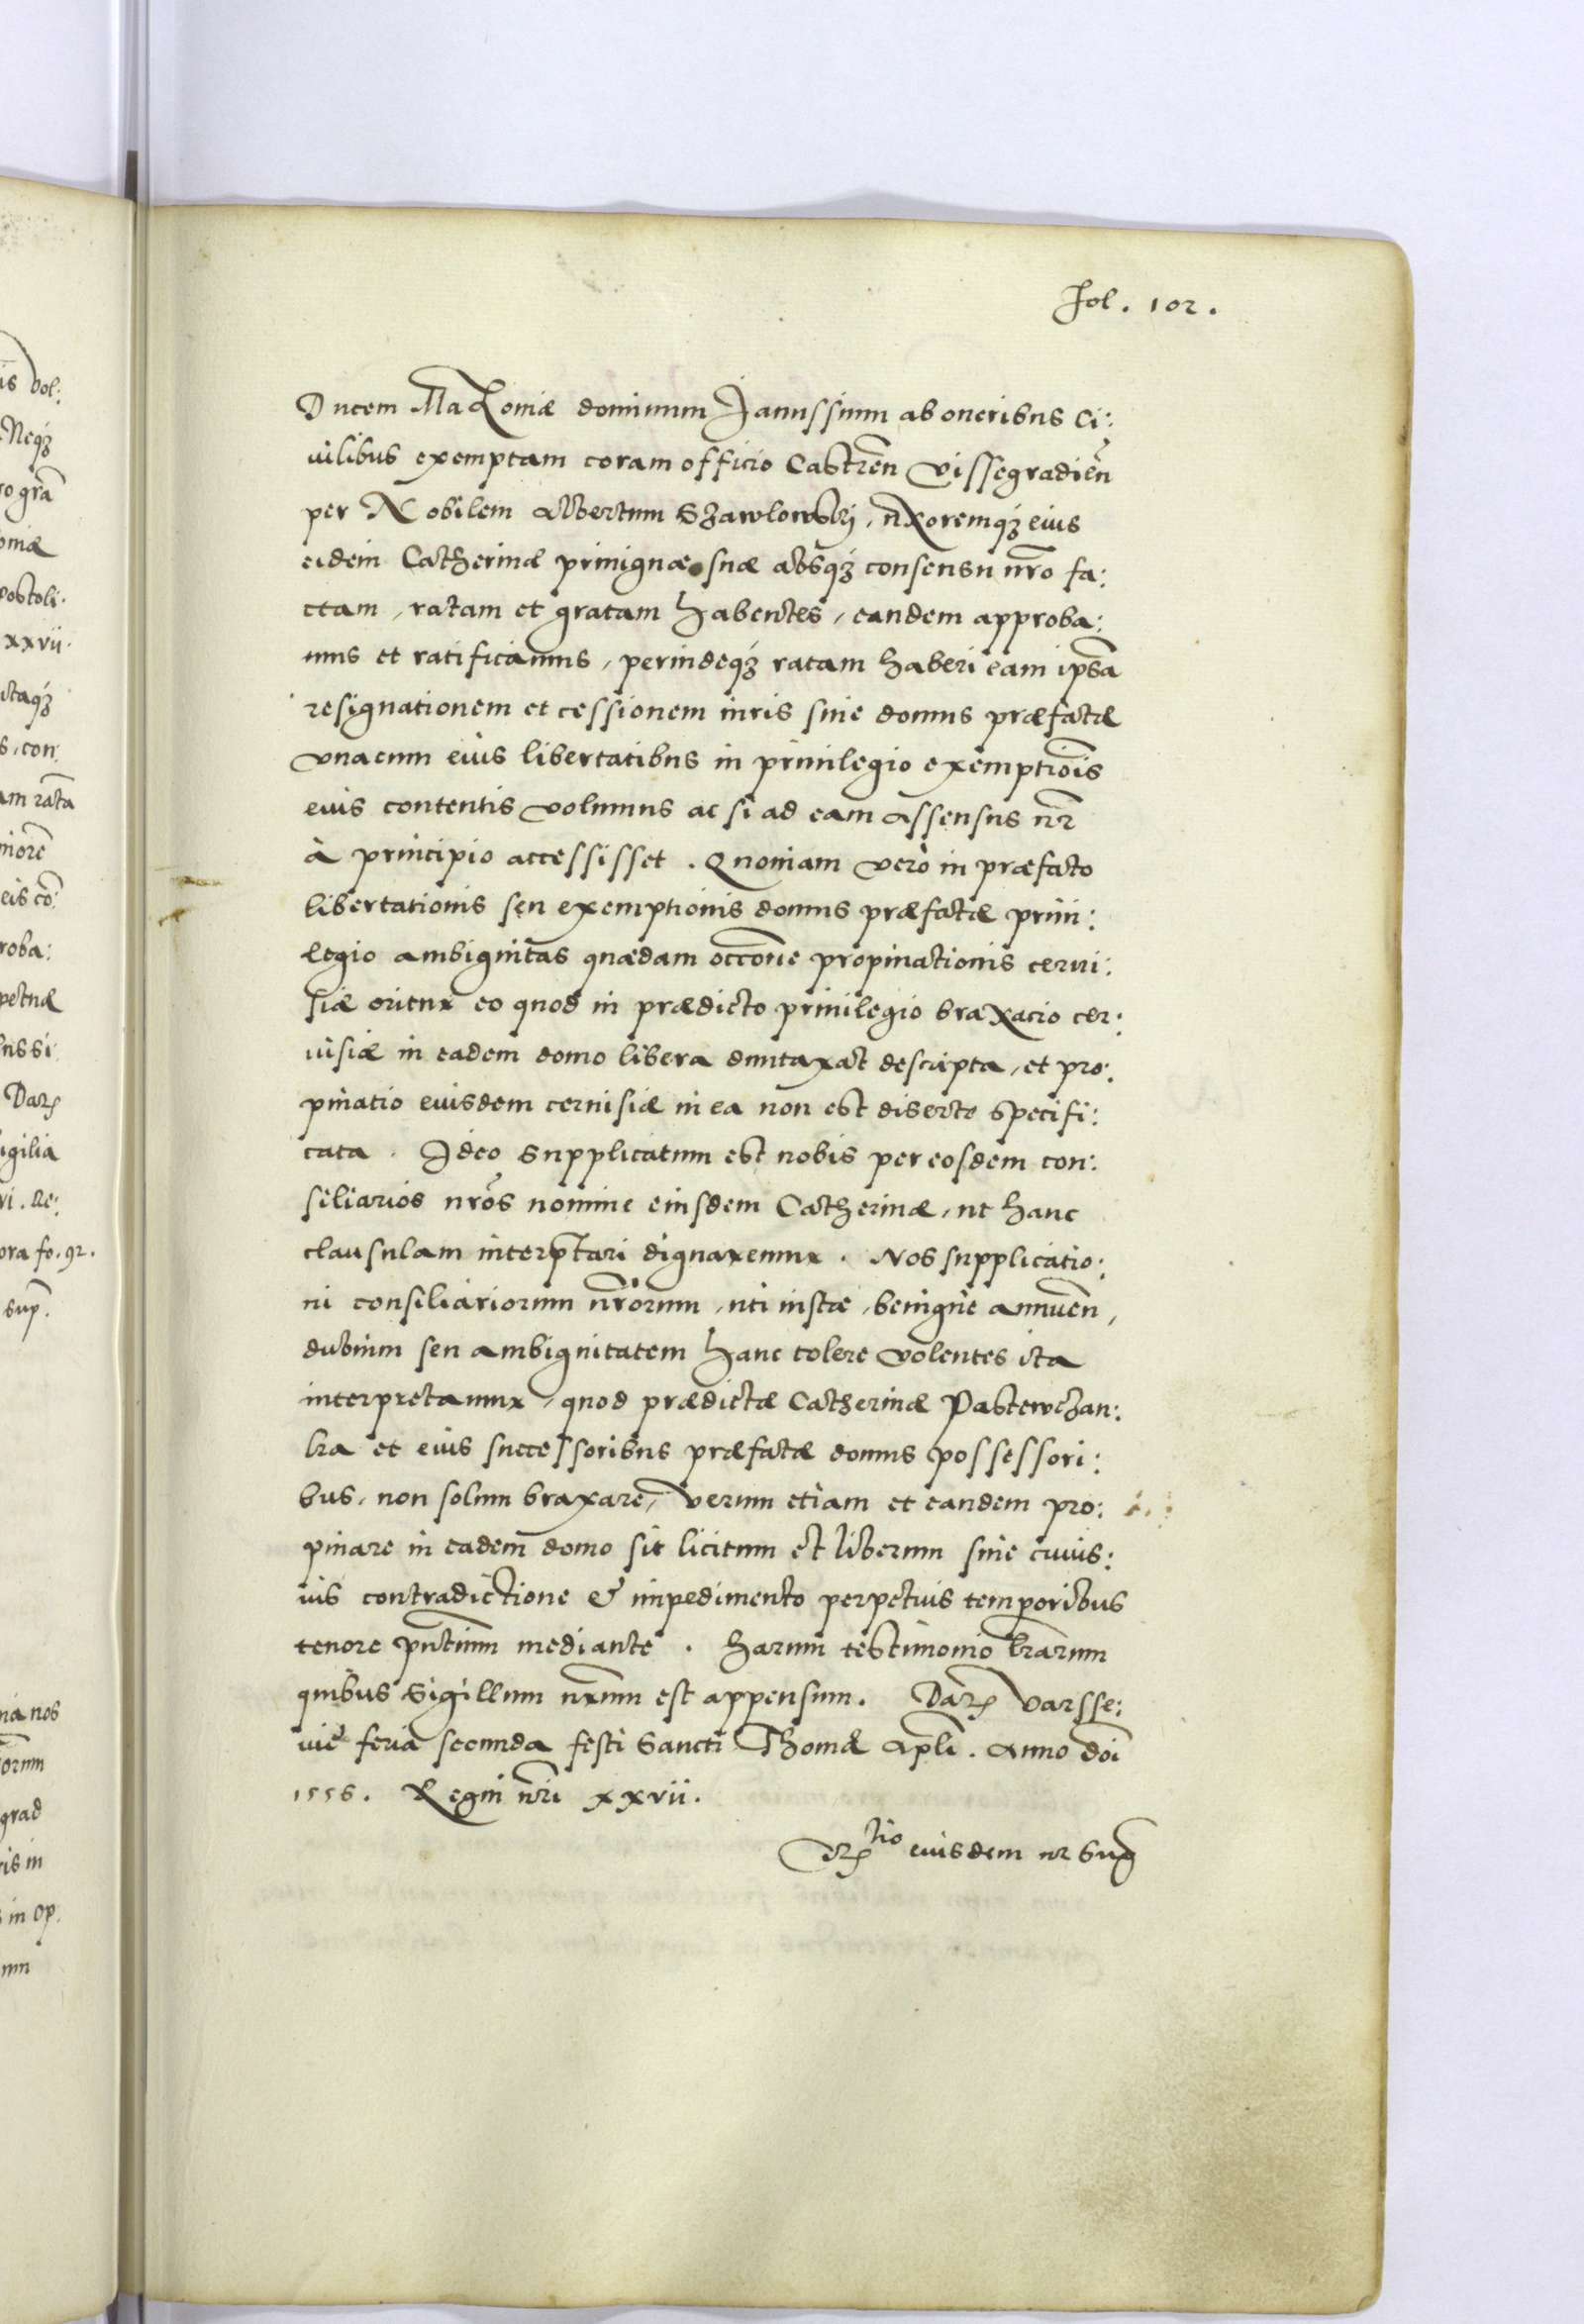 Fol. 102.
Ducem Mazoviæ dominum Janussium ab oneribus ci:
vilibus exemptam coram officio Castren̄ Vissegradien̄
per Nobilem Albertum Szawlowskj, uxoremqꝫ eius
eidem Catherinæ privignæ suæ absqꝫ consensu nr̄o fa:
ctam, ratam et gratam habentes, eandem approba:
mus et ratificamus, perindeqꝫ ratam haberi eam ipsā
resignationem et cessionem iuris sive domus præfatæ
vna cum eius libertatibus in privilegio exemptiōis
eius contentis volumus ac si ad eam assensus nr̄
à principio accessisset. Quoniam verò in præfato
libertationis seu exemptionis domus præfatæ privi:
legio ambiguitas quædam occōne propinationis cervi:
siæ oritur eo quod in prædicto privilegio braxacio cer:
visiæ in eadem domo libera duntaxat descripta, et pro:
pinatio eiusdem cervisiæ in ea non est diserte specifi:
cata. Ideo supplicatum est nobis per eosdem con:
siliarios nr̄os nomine eiusdem Catherinæ, ut hanc
clausulam interp̄tari dignaremur. Nos supplicatio:
ni consiliariorum nr̄orum, uti iustæ, benigne annuen̄,
dubium seu ambiguitatem hanc tolere volentes ita
interpretamur, quod prædictæ Catherinæ Pastewczan:
ka et eius successoribus præfatæ domus possessori:
bus, non solum braxare, verum etiam et eandem pro:
pinare in eadem domo sit licitum et liberum sine cuius:
vis contradictione & impedimento perpetuis temporibus
tenore pn̄tium mediante. Harum testimonio lr̄arum
quibus Sigillum nr̄um est appensum. Datꝭ Varsse:
vie feria secunda festi Sancti Thomæ Apl̄i. Anno Dōi
1556. Regni nr̄i xxvii.
eiusdem ut Sup
is vol:
Neqꝫ
ro gr̄a
oniæ
postoli.
xxvii.
itaqꝫ
s, con:
am ratā
eis cō:
roba:
petuæ
ussi
Datꝭ
igilia
vi. Re:
pra fo. 92.
sup̄.
nia nos
grad
ris in
s in op: